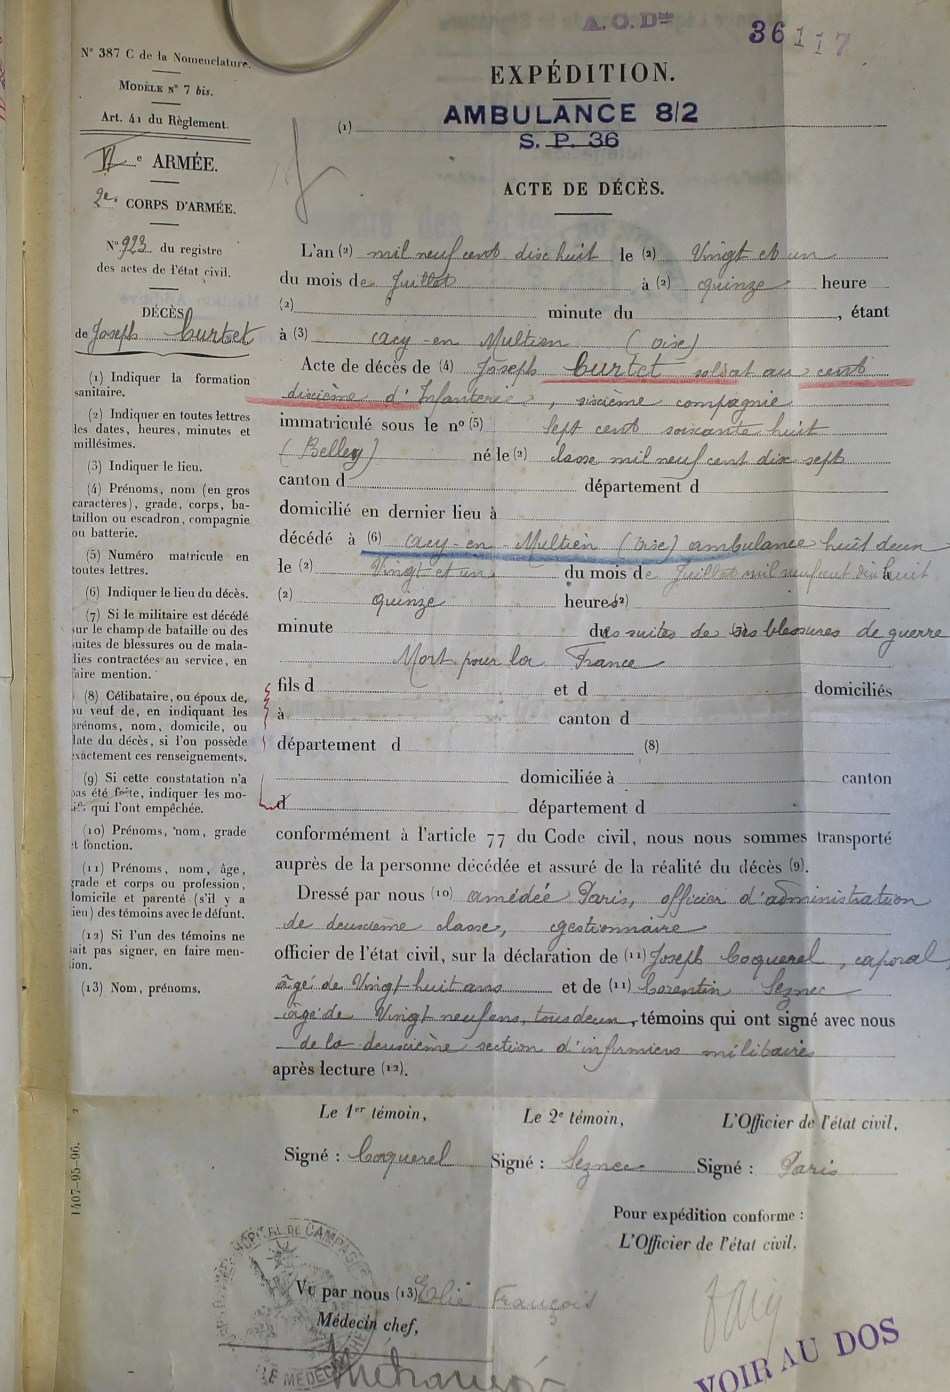 A. C. Dⁿᵉ
36117
N° 387 C de la Nomenclature.
MODÈLE N° 7 bis.
Art. 41 du Règlement.
VIe ARMÉE.
2e CORPS D'ARMÉE.
N° 923 du registre
des actes de l'état civil.
DÉCÈS
de Joseph Curtet
(1) Indiquer la formation
sanitaire.
(2) Indiquer en toutes lettres
les dates, heures, minutes et
millésimes.
(3) Indiquer le lieu.
(4) Prénoms, nom (en gros
caractères), grade, corps, ba-
taillon ou escadron, compagnie
ou batterie.
(5) Numéro matricule en
toutes lettres.
(6) Indiquer le lieu du décès.
(7) Si le militaire est décédé
sur le champ de bataille ou des
suites de blessures ou de mala-
dies contractées au service, en
faire mention.
(8) Célibataire, ou époux de,
ou veuf de, en indiquant les
prénoms, nom, domicile, ou
date du décès, si l'on possède
exactement ces renseignements.
(9) Si cette constatation n'a
pas été faite, indiquer les mo-
tifs qui l'ont empêchée.
(10) Prénoms, nom, grade
et fonction.
(11) Prénoms, nom, âge,
grade et corps ou profession,
domicile et parenté (s'il y a
lieu) des témoins avec le défunt.
(12) Si l'un des témoins ne
sait pas signer, en faire men-
tion.
(13) Nom, prénoms.
1407-95-96.
EXPÉDITION.
(1) AMBULANCE 8/2
S. P. 36
ACTE DE DÉCÈS.
L'an (2) mil neuf cent dix huit le (2) Vingt et un
du mois de Juillet à (2) quinze heure
(2) minute du , étant
à (3) Acy-en Multien (Oise)
Acte de décès de (4) Joseph Curtet soldat au cent
dixième d'Infanterie, sixième compagnie
immatriculé sous le n° (5) Sept cent soixante huit
(Belley) né le (2) classe mil neuf cent dix sept
canton d département d
domicilié en dernier lieu à
décédé à (6) Acy-en Multien (Oise) ambulance huit deux
le (2) Vingt et un du mois de Juillet mil neuf cent dix huit à
(2) quinze heures (2)
minute des suites de ses blessures de guerre
Mort pour la France
fils d et d domiciliés
à canton d
département d (8)
domiciliée à canton
d département d
conformément à l'article 77 du Code civil, nous nous sommes transporté
auprès de la personne décédée et assuré de la réalité du décès (9).
Dressé par nous (10) Amédée Paris, officier d'administration
de deuxième classe, gestionnaire
officier de l'état civil, sur la déclaration de (11) Joseph Cocquerel, caporal
âgé de Vingt huit ans et de (11) Corentin Seznec
âgé de Vingt neuf ans, tous deux, témoins qui ont signé avec nous
de la deuxième section d'infirmiers militaires
après lecture (12).
Le 1er témoin, Le 2e témoin, L'Officier de l'état civil,
Signé : Cocquerel Signé : Seznec Signé : Paris
Pour expédition conforme :
L'Officier de l'état civil.
HOPITAL DE CAMPAGNE
Vu par nous (13) Elie François
Médecin chef,
LE MÉDECIN CHEF
VOIR AU DOS